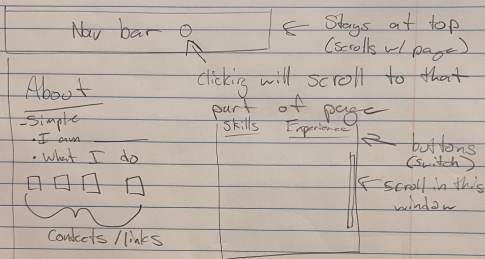 Nav bar
Stays at top
(scrolls w/ page)
Clicking will scroll to that
part of page
About
- Simple
• I am
• What I do
Contacts / links
Skills Experience
buttons
(switch)
scroll in this
window